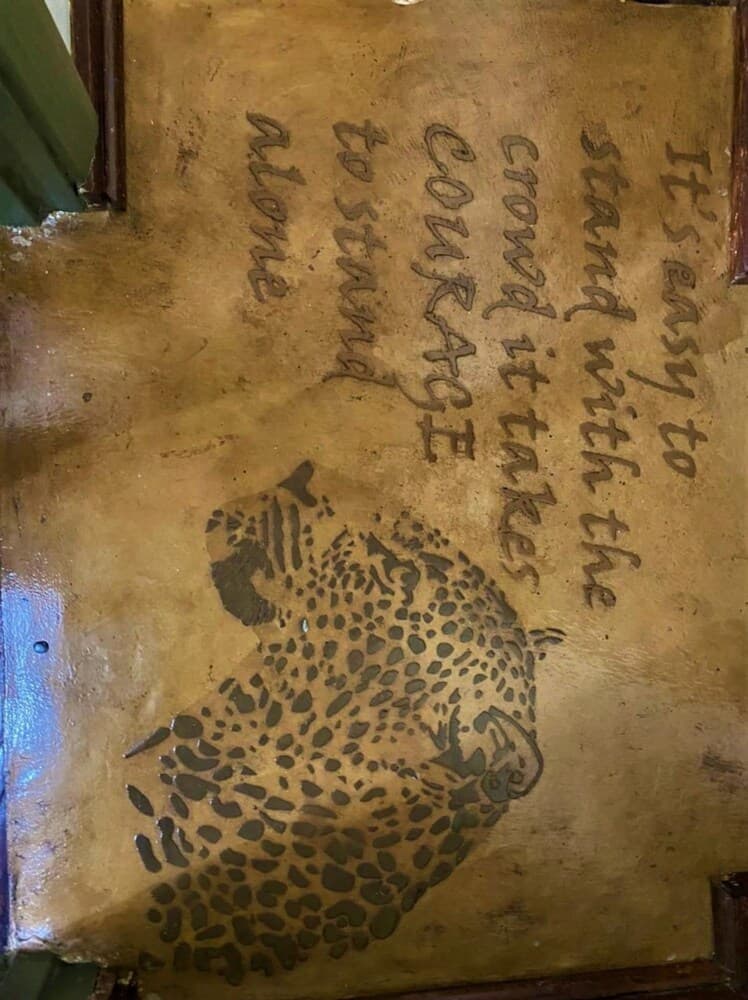 It's easy to
stand with the
crowd it takes
COURAGE
to stand
alone